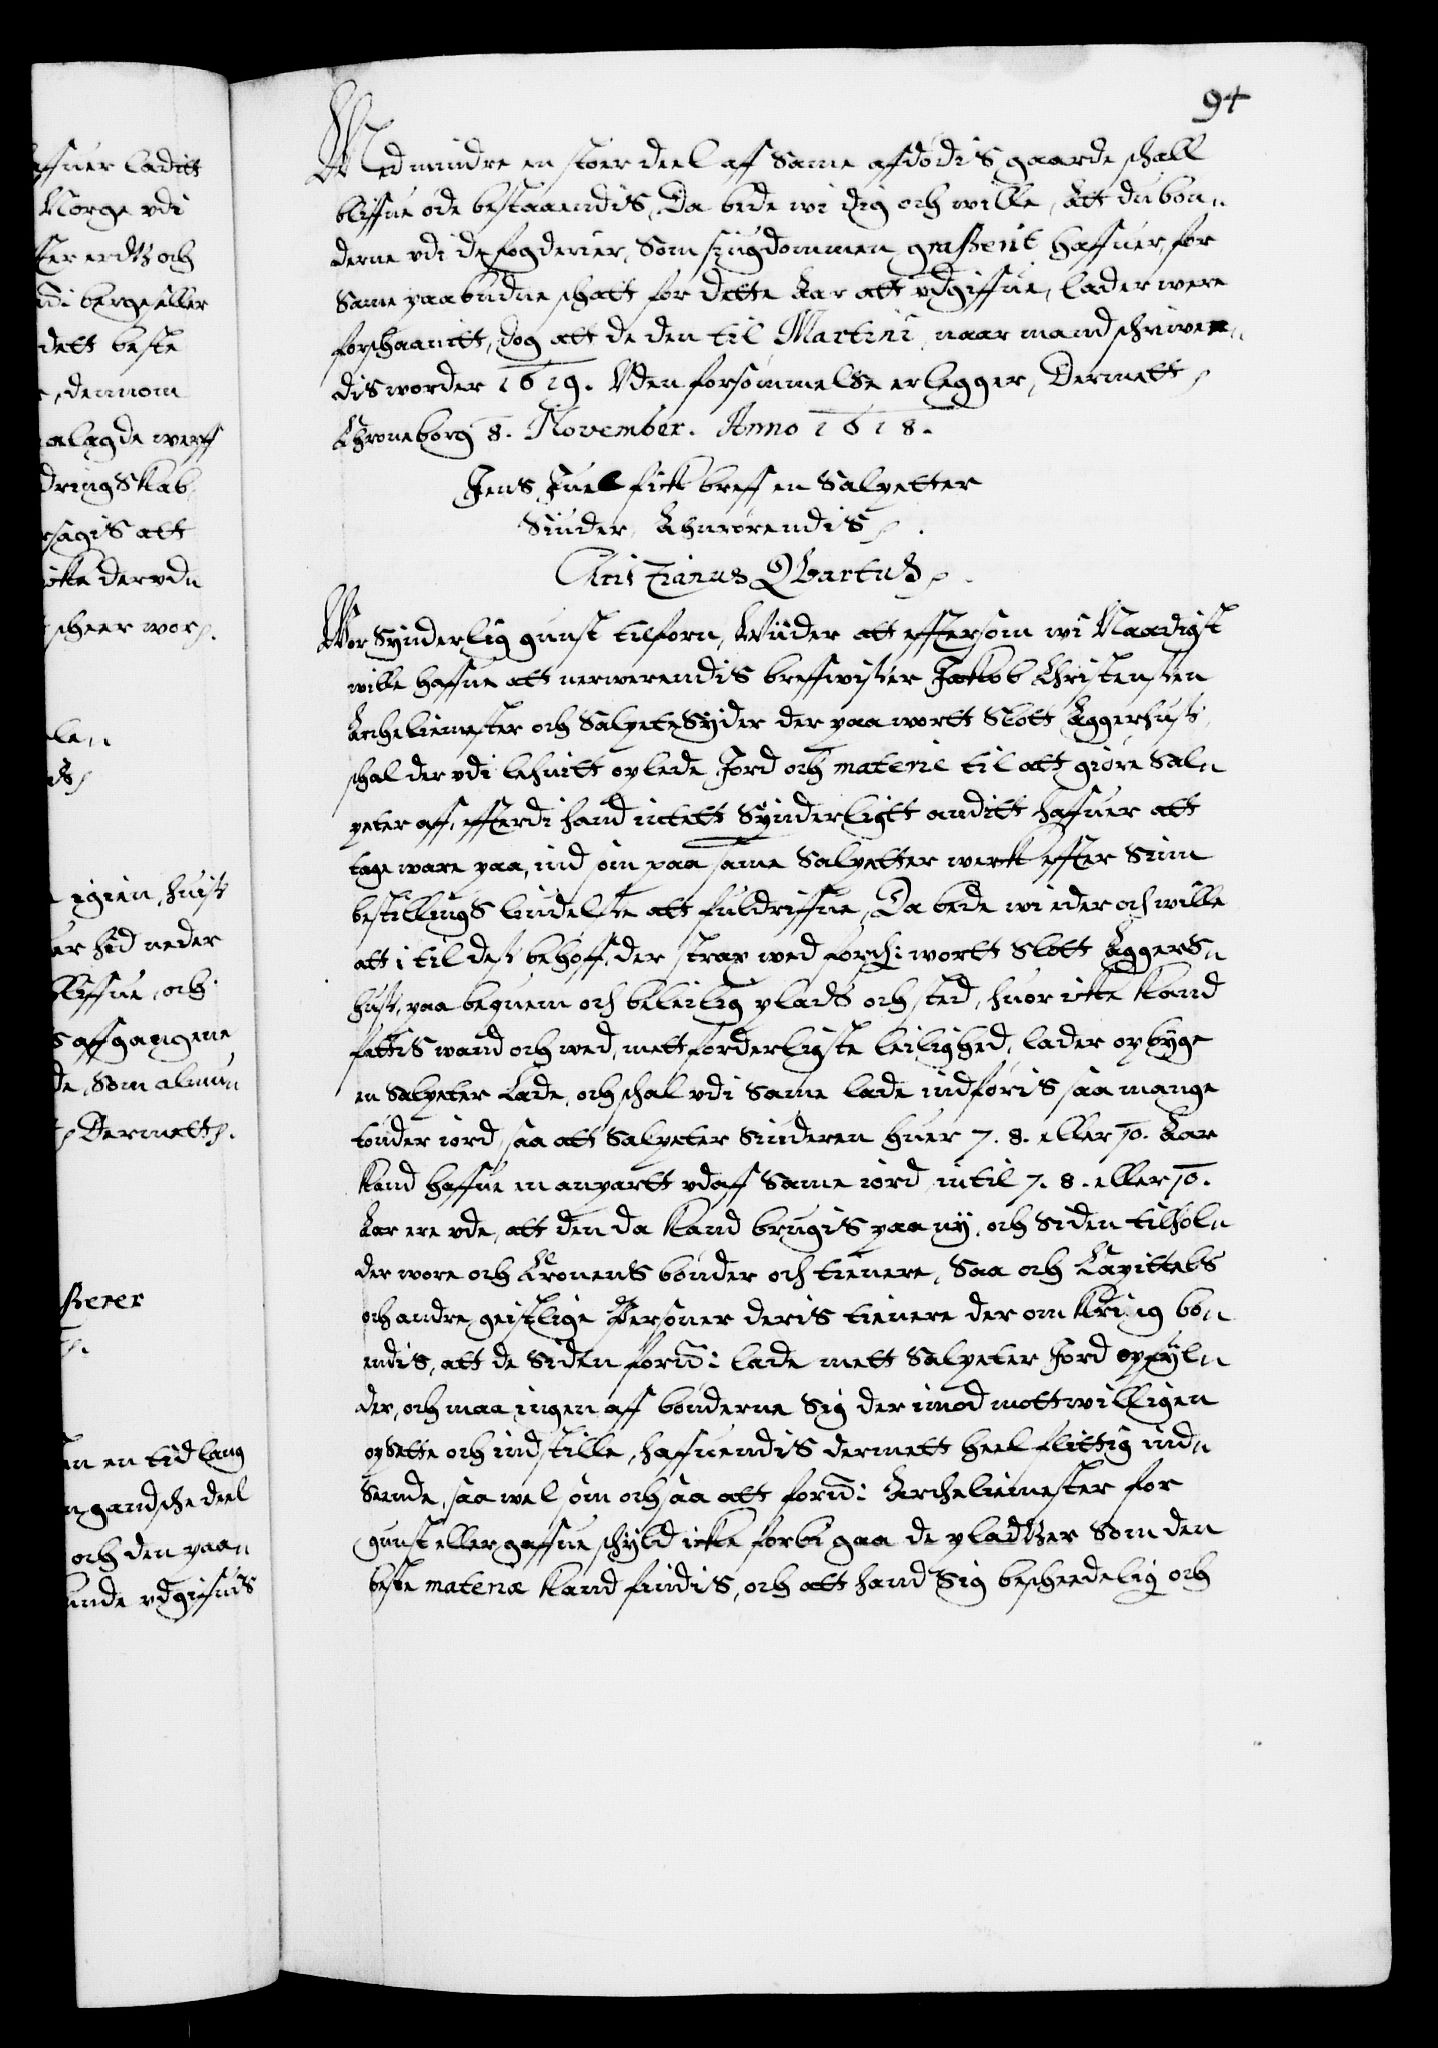 94
Med mindre en stoer deel af same afdødis gaarde schall
bliffue øde bestaaendis, Da bede wi dig och wille, Att du bøn„
derne vdi de fogderier, Som siugdommen grasserit haffuer, for
same paabudne schatt for dette Aar att vdgiffue, lader were
forschaanitt, dog att de den til Martini, naar mand schriwen„
dis worder 1619. Vden forsømmelse erlegger, Dermett
Chroneborg 8. November. Anno 1618.
Jens Juel fick breff en Salpetter
Siuder Anrørendis
Christianus Qvartus
Wor Synderlig gunst tilforn, Wiider att effterson wi Naadigst
wille haffue att nerwerendis breffuisser Jakob Christenssen
Archeliemester och Salpetesyder der paa wortt Slott Aggershus,
schal der vdi lehnitt oplede Jord och materie til att giøre Sal„
peter aff, efferdi hand intett Synderligtt anditt haffuer att
tage ware paa, ind om paa same Salpetter werck effter Siin
bestillings liudelsse att fuldriffue, Da bede wi eder och wille
att i til dess behoff, der strax wed forsch: wortt Slott Aggers„
huss, paa bequem och beleilig plads och sted, huor icke kand
fattis wand och wed, mett forderligste leilighed, lader opbyge
en Salpeter Lade, och schal vdi same lade indføris saa mange
tønder iord, saa att Salpeter Siuderen huer 7. 8. eller 10. Aar
kand haffue en anpartt vdaff same iord, intil 7. 8. eller 10.
Aar ere vde, att den da kand brugis paa ny, och siden tilhol„
der wore och Cronens bønder och tienere, Saa och Capittels
och andre geistlige Personer deris tienere der omkring bo„
endis, att de siden fornd: lade mett Salpeter Jord opfyl„
der, och maa ingen aff bønderne Sig der imod mottwilligen
opsette och indstille, hafuendis dermett heel flittig ind„
seende, saa wel som och saa att fornd: Archeliemester for
gunst eller gaffue schyld icke forbi gaa de pladtzer som den
beste materia kand findis, och att hand Sig bescheedelig och